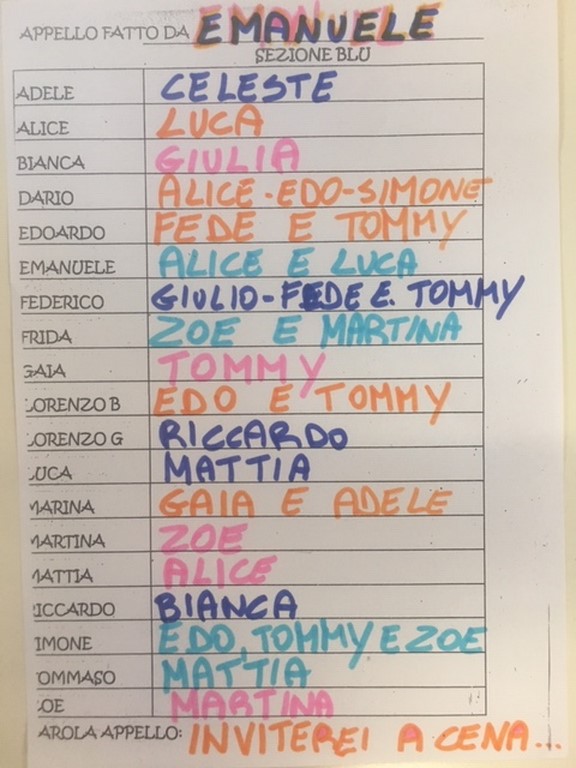 APPELLO FATTO DA EMANUELE
SEZIONE BLU
ADELE CELESTE
ALICE LUCA
BIANCA GIULIA
DARIO ALICE-EDO-SIMONE
EDOARDO FEDE E TOMMY
EMANUELE ALICE E LUCA
FEDERICO GIULIO-FEDE E. TOMMY
FRIDA ZOE E MARTINA
GAIA TOMMY
LORENZO B EDO E TOMMY
LORENZO G RICCARDO
LUCA MATTIA
MARINA GAIA E ADELE
MARTINA ZOE
MATTIA ALICE
RICCARDO BIANCA
IMONE EDO, TOMMY E ZOE
OMMASO MATTIA
OE MARTINA
AROLA APPELLO: INVITEREI A CENA...